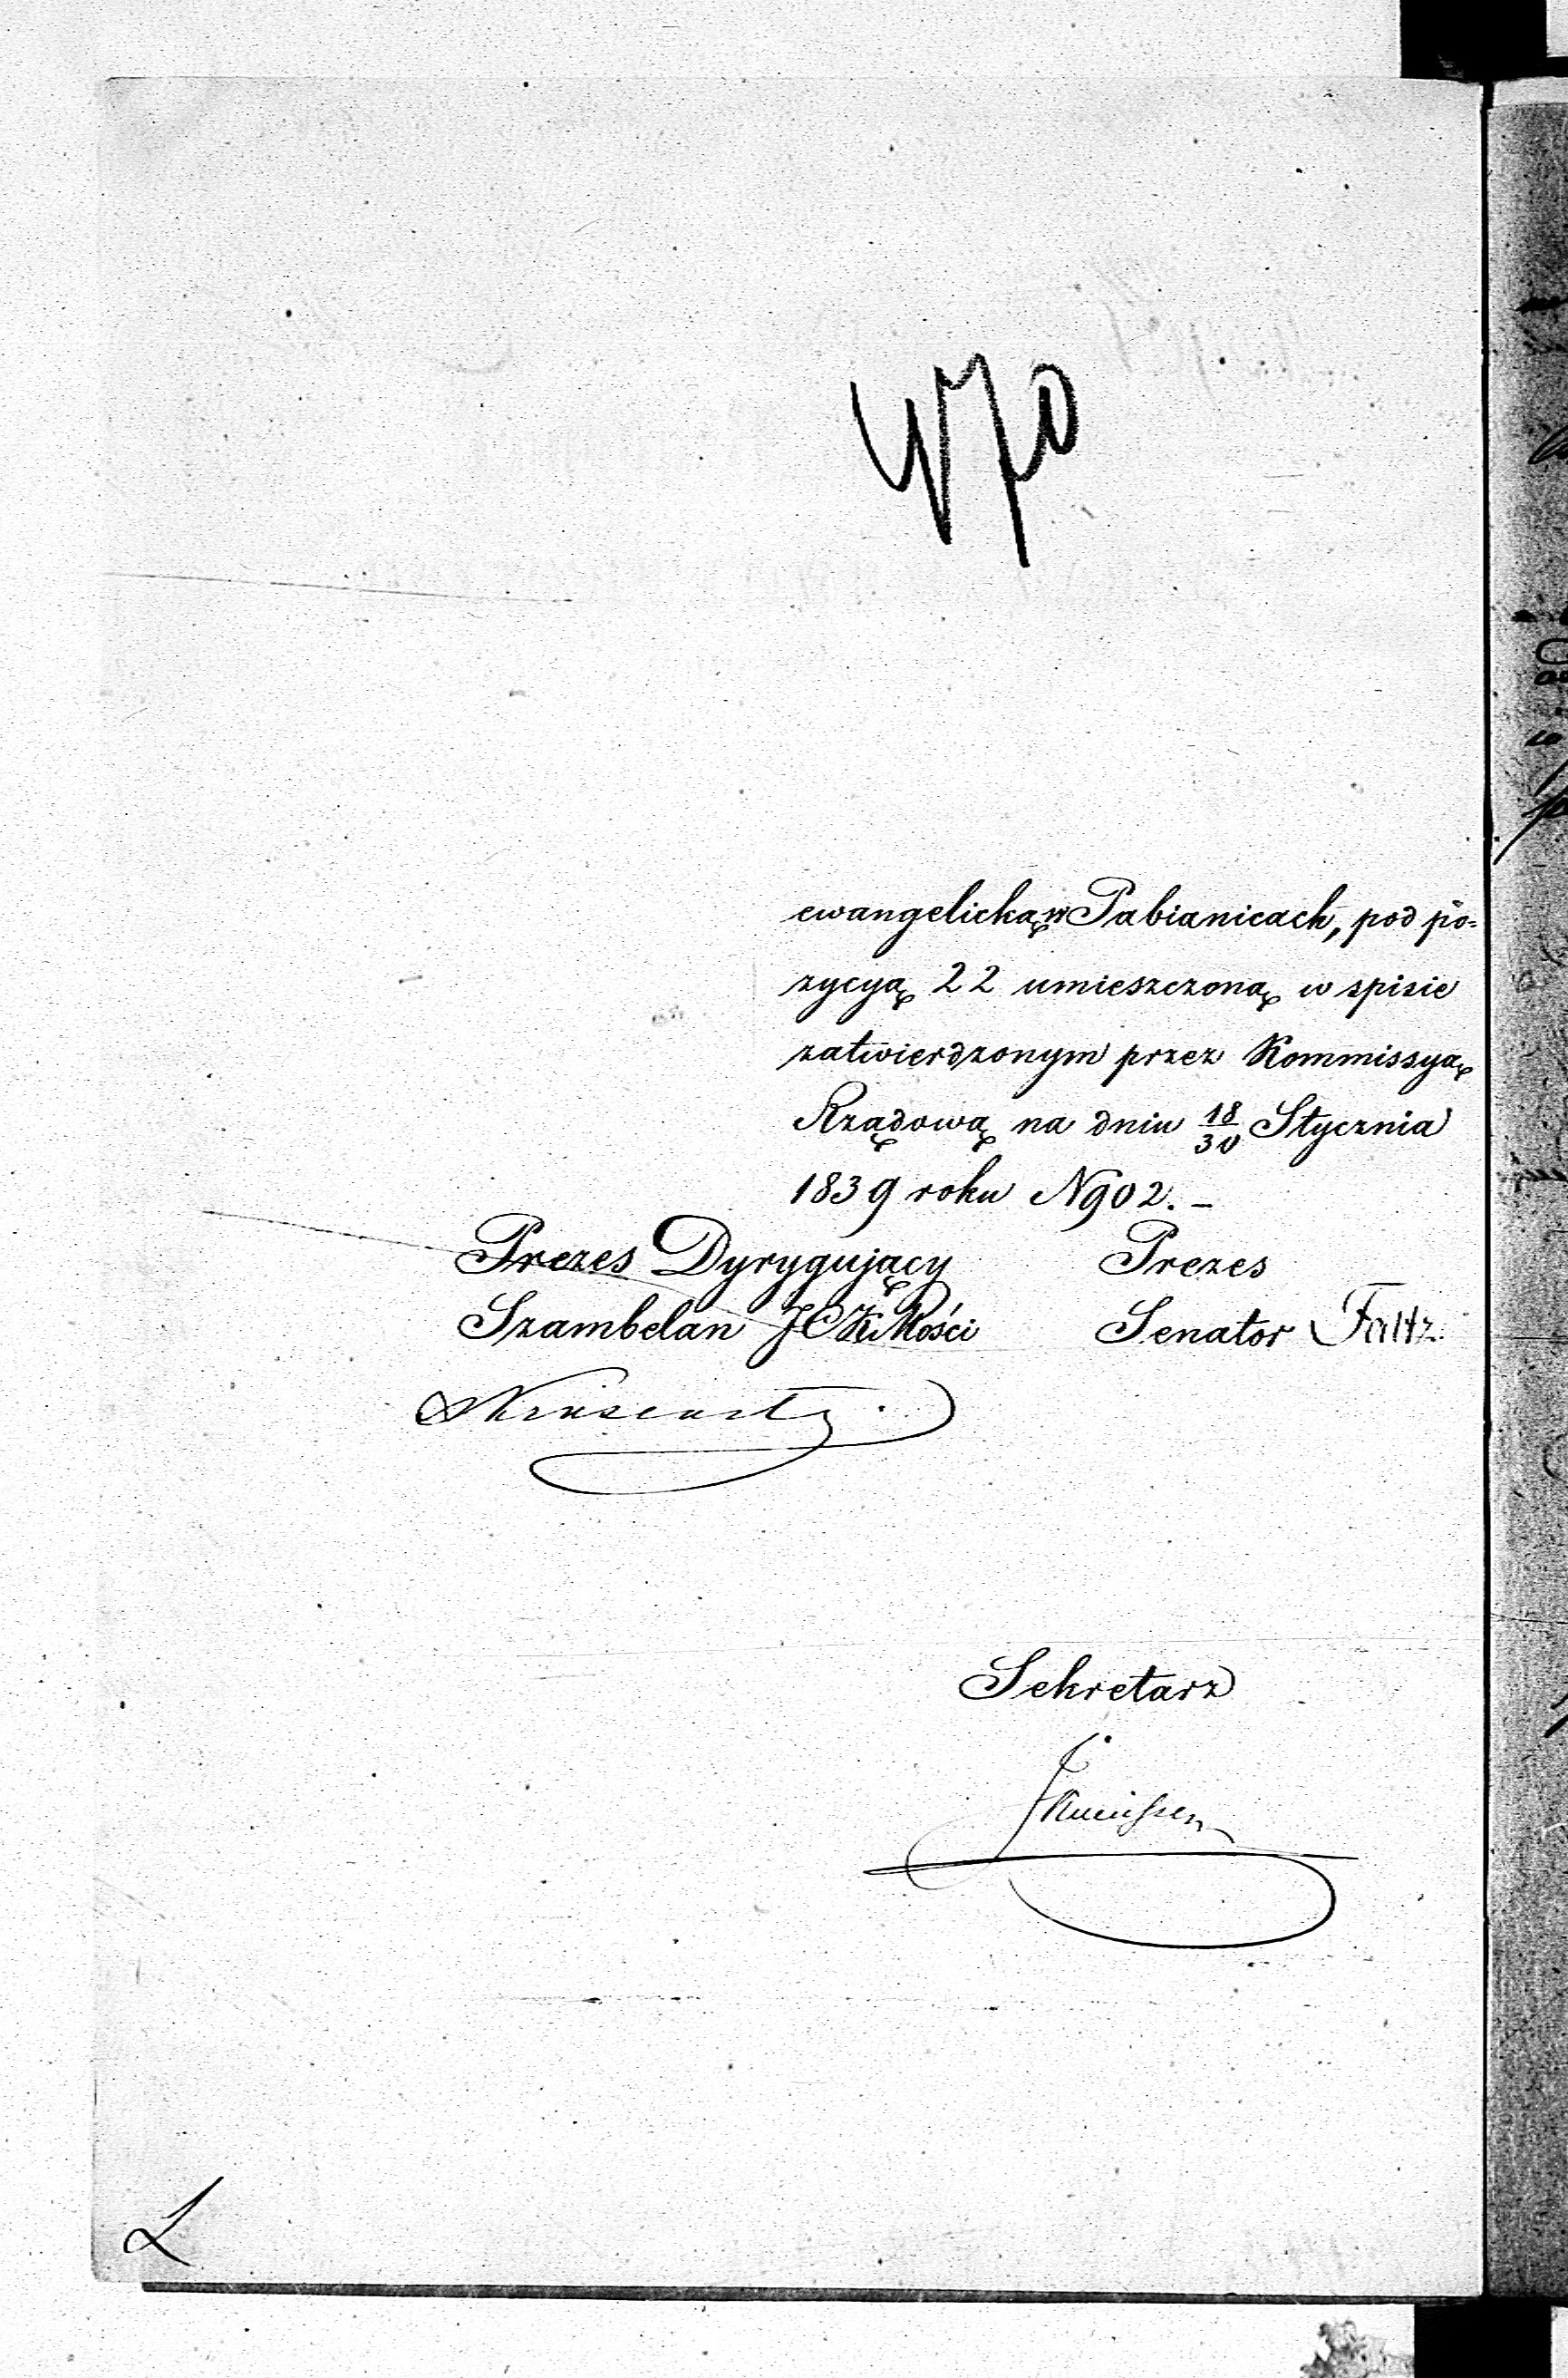 470
ewangelicką w Pabianicach, pod po=
zycyą 22 umieszczoną w spisie
zatwierdzonym przez Kommissyą
Rządową na dniu 18/30 Stycznia
1839 roku N902. –
Prezes Dyrygujący Prezes
Szambelan JCKMości Senator Faltz.
Sekretarz
L